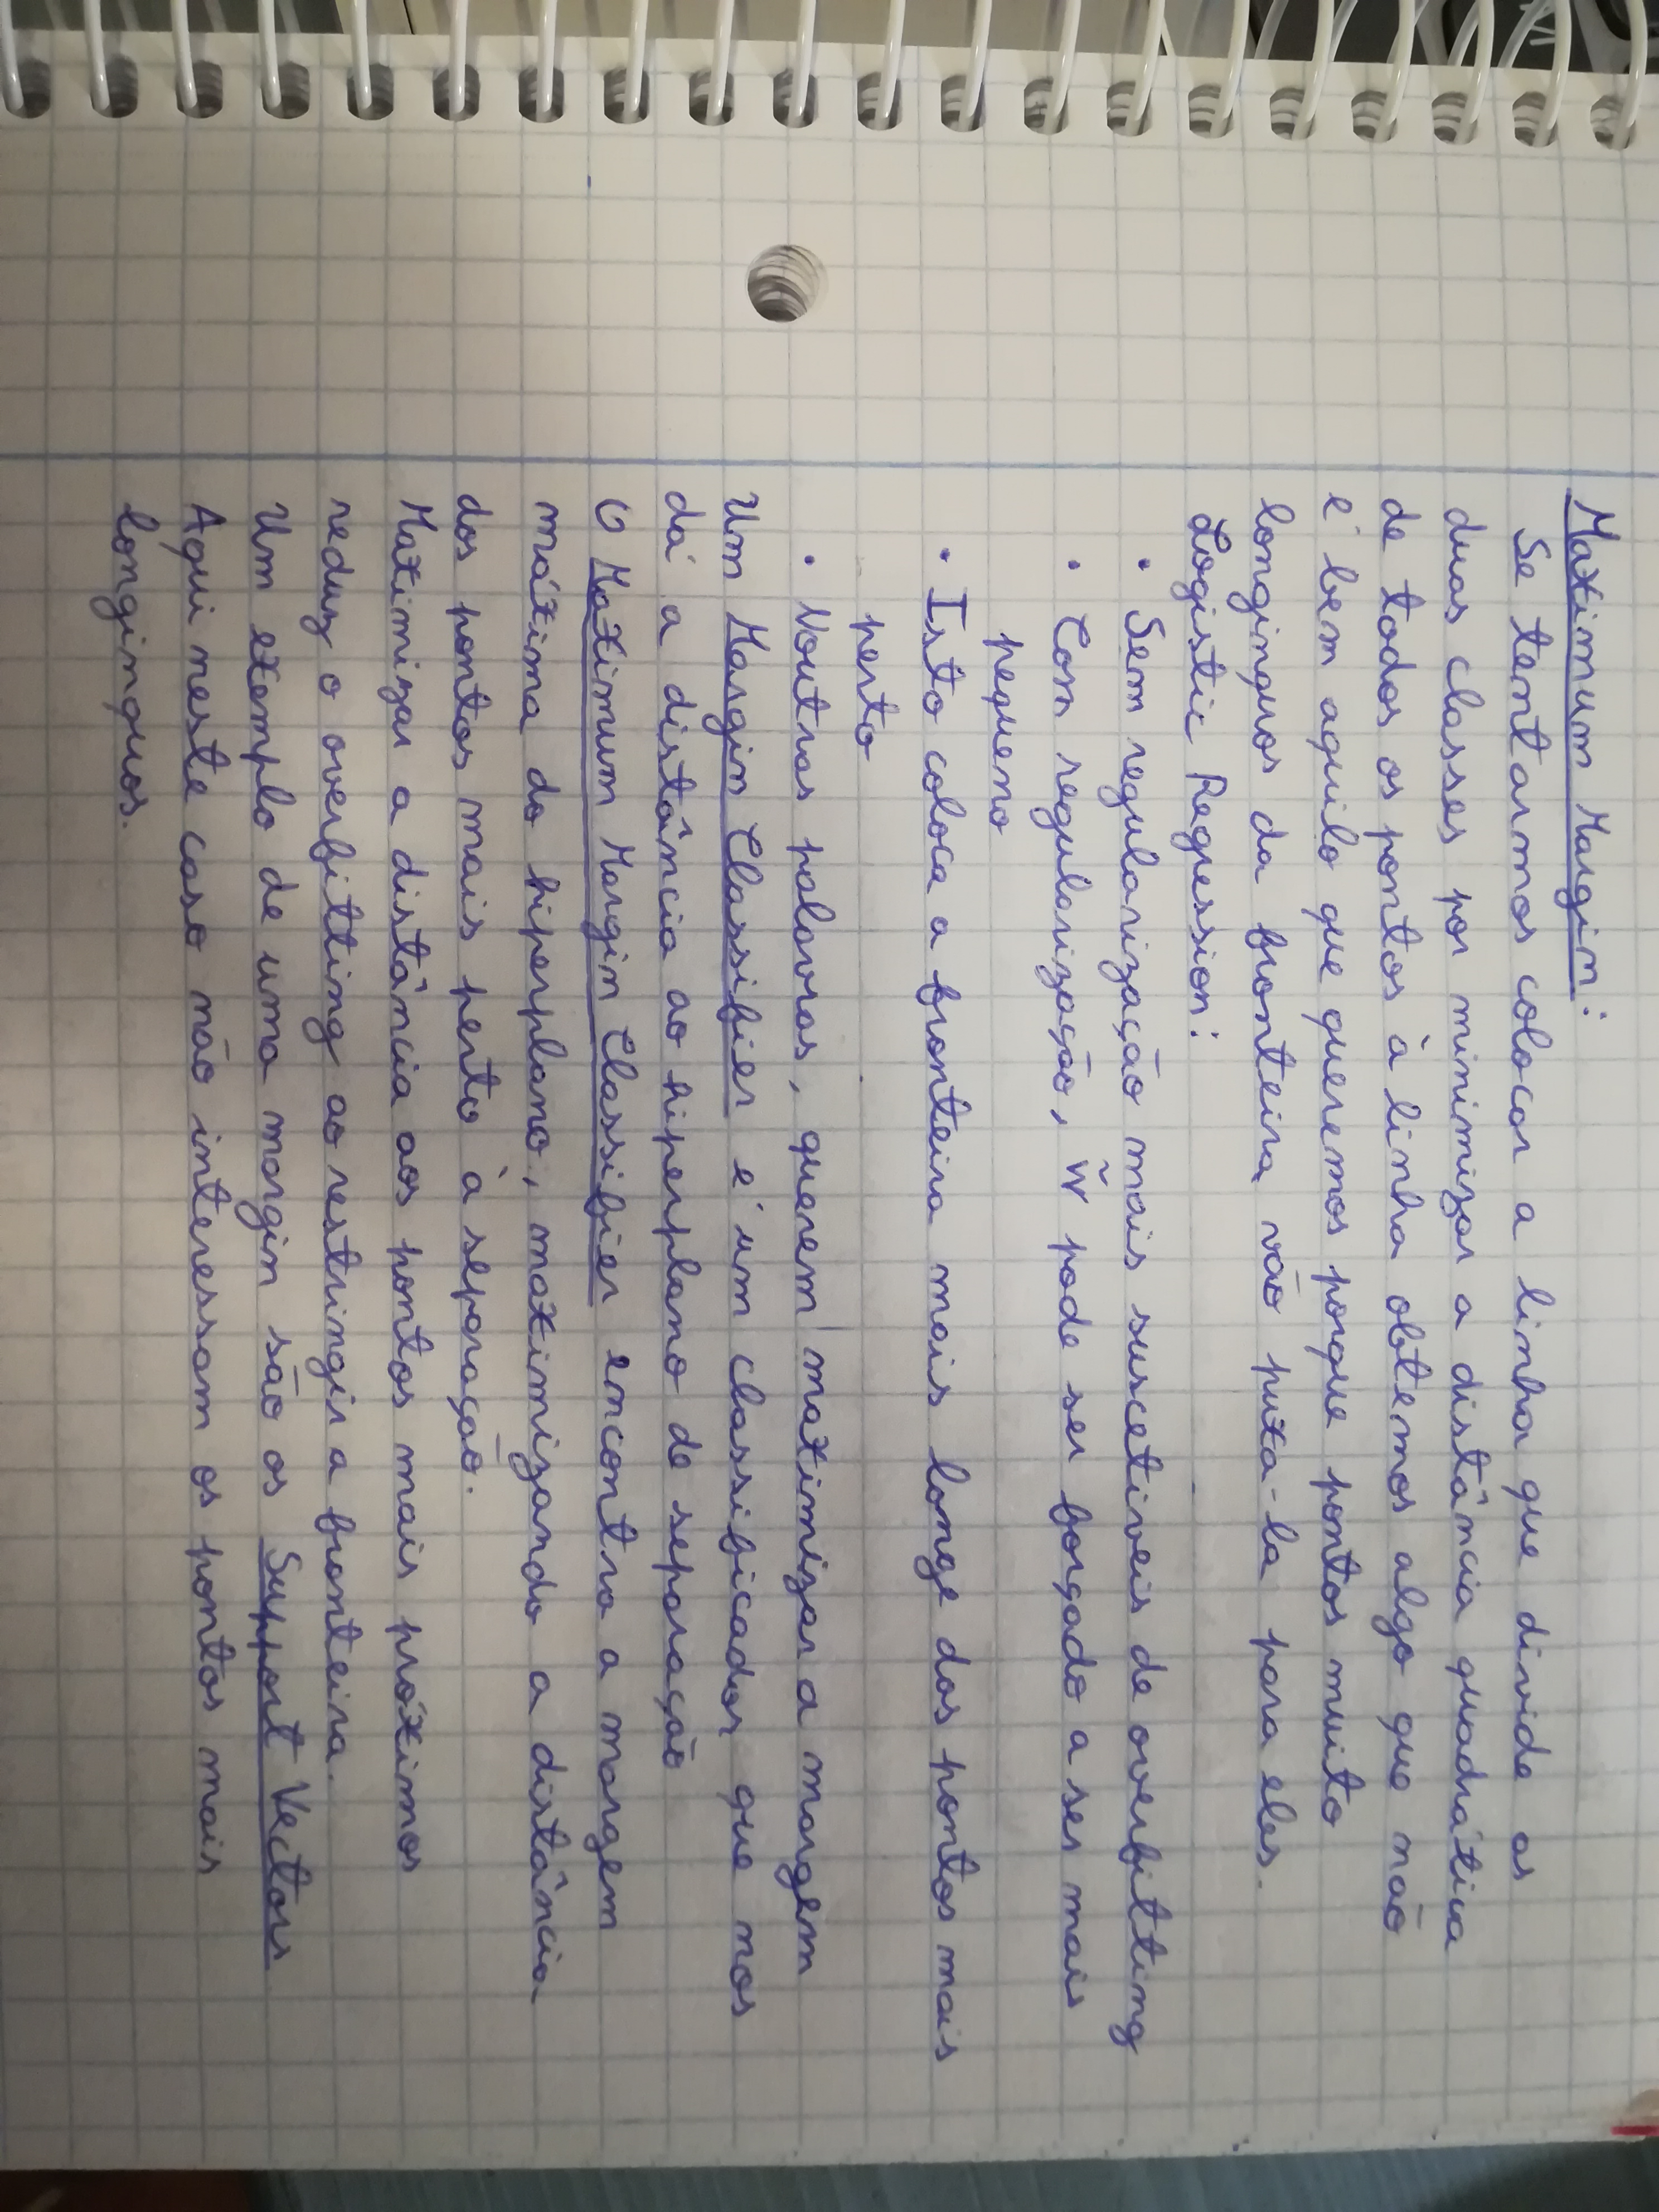 Maximum Margin:
Se tentarmos colocar a linha que divide as
duas classes por minimizar a distância quadrática
de todos os pontos à linha obtemos algo que não
é bem aquilo que queremos porque pontos muito
longinquos da fronteira vão puxa-la para eles.
Logistic Regression:
• Sem regularização mais suscetiveis de overfitting
• Com regularização, w̃ pode ser forçado a ser mais
pequeno
• Isto coloca a fronteira mais longe dos pontos mais
perto
• Noutras palavras, querem maximizar a margem
Um Margin Classifier é um classificador que nos
dá a distância ao hiperplano de separação
O Maximum Margin Classifier encontra a margem
máxima do hiperplano, maximizando a distância
dos pontos mais perto à separação.
Maximizar a distância aos pontos mais próximos
reduz o overfitting ao restringir a fronteira.
Um exemplo de uma margin são os Support Vectors
Aqui neste caso não interessam os pontos mais
longinquos.